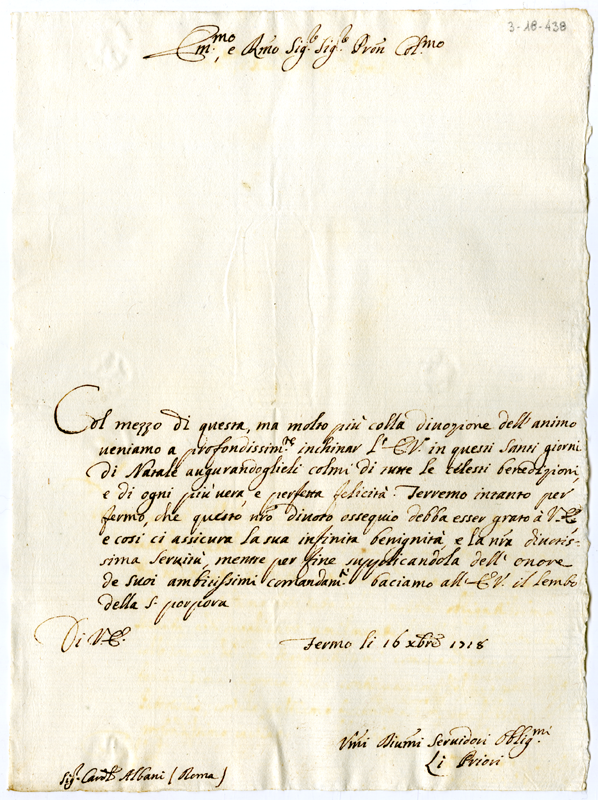 3-18-438
Em.mo, e Rmo Sig.e Sig.e Pron Col.mo
Col mezzo di questa, ma molto più colla divozione dell'animo
veniamo a profondissim.te inchinar l'E.V. in questi Santi giorni
di Natale augurandoglieli colmi di tutte le celesti benedizioni,
e di ogni più vera, e perfetta felicità. Terremo intanto per
fermo, che questo nro divoto ossequio debba esser grato à V.E.
e così ci assicura la sua infinita benignità e la nra divotis-
sima servitù, mentre per fine supplicandola dell'onore
de suoi ambitissimi comandam.ti baciamo all'E.V. il lembo
della S. porpora
Di V.E. Fermo li 16 xbre 1718
Vmi Diumi Servidori Oblig.mi
Li Priori
Sig. Card.l Albani (Roma)